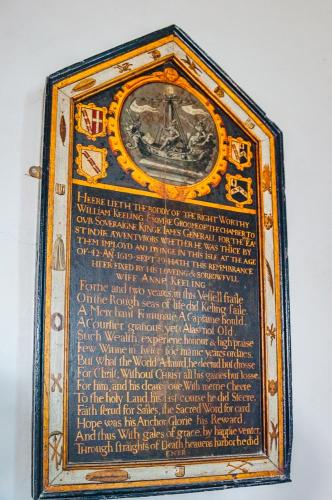 HEERE LIETH THE BODDY OF THE RIGHT WORTHY
WILLIAM KEELING ESQVIRE GROOME OF THE CHAMBER TO
OVR SOVERAIGNE KINGE IAMES GENERALL FOR THE EA
ST INDIE ADVENTVRORS WHETHER HE WAS THICE BY
THEM IMPLOYD AND DYINGE IN THIS ISLE AT THE AGE
OF 42 AN 1619 SEPT 19 HATH THIS REMEMBRANCE
HEER FIXED BY HIS LOVEING & SORROWFVLL
WIFE ANNE KEELING
Fortie and two yeares in this Vessell fraile
On the Rough seas of life did Keling saile
A Merchant Fortunate A Captaine bould
A Courtier gratious yett Alas not Old
Such Wealth experience honour & high praise
Few Winne in twice soe manie yeares or daies
But what the World Admired he deemd but drosse
For Christ, Without CHRIST all his gaines but losse
For him, and his deare love With merrie Cheere
To the holy Land his last course he did Steere
Faith serud for Sailes, the Sacred Word for card
Hope was his Anchor, Glorie his Reward
And thus With gales of grace by happie venter
Through straights of Death heavens harbor he did
ENER